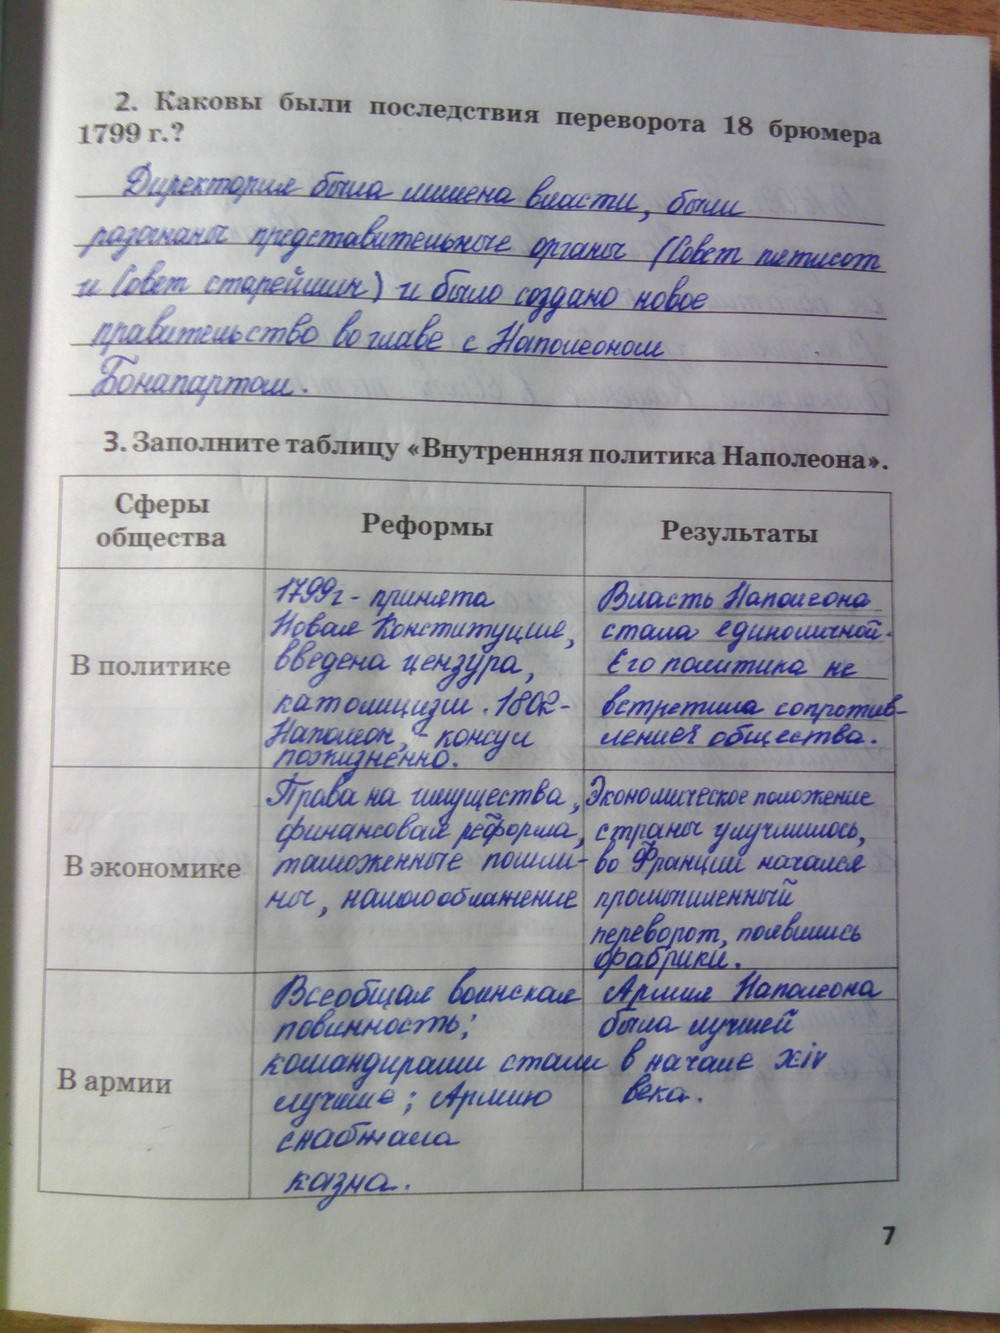 2. Каковы были последствия переворота 18 брюмера
1799 г.?
Директория была лишена власти, были
разогнаны представительные органы (Совет пятисот
и Совет старейшин) и было создано новое
правительство во главе с Наполеоном
Бонапартом.
3. Заполните таблицу «Внутренняя политика Наполеона».
Сферы
общества
Реформы
Результаты
В политике
1799г - принята
Новая Конституция,
введена цензура,
католицизм. 1802-
Наполеон, - консул
пожизненно.
Власть Наполеона
стала единоличной.
Его политика не
встретила сопротив-
ления общества.
В экономике
Права на имущества,
финансовая реформа,
таможенные пошли-
ны, налогообложение
Экономическое положение
страны улучшилось,
во Франции начался
промышленный
переворот, появились
фабрики.
В армии
Всеобщая воинская
повинность;
командирами стали
лучшие; Армию
снабжала
казна.
Армия Наполеона
была лучшей
в начале XIV
века.
7